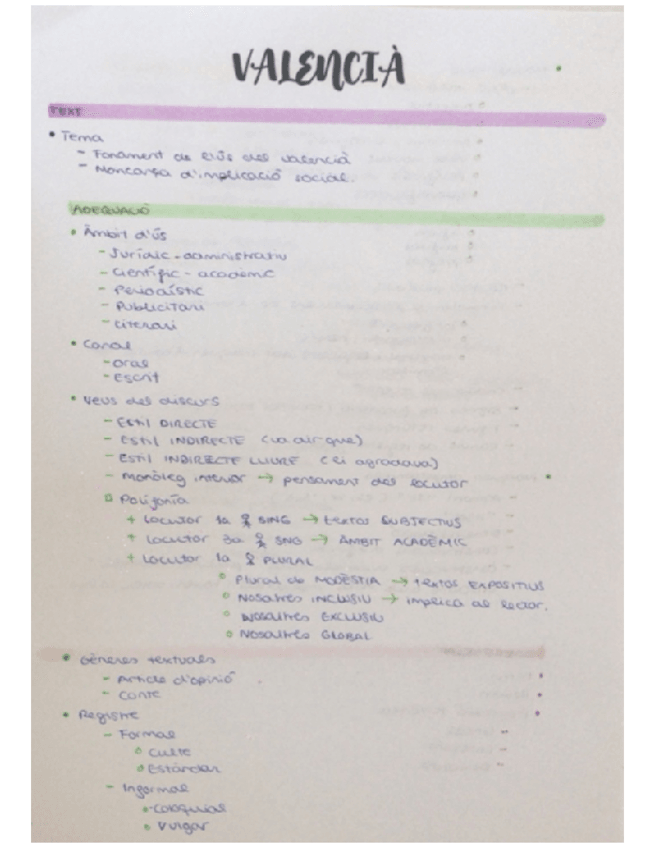 VALENCIÀ
TEXT
• Tema
- Fonament de l'ús del valencià
- Mancança d'implicació social.
ADEQUACIÓ
• Àmbit d'ús
- Jurídic - administratiu
- Científic - acadèmic
- Periodístic
- Publicitari
- Literari
• Canal
- Oral
- Escrit
• Veus del discurs
- Estil DIRECTE
- Estil INDIRECTE (va dir que)
- Estil INDIRECTE LLIURE (li agradava)
- Monòleg interior → pensament del locutor
Polifonia
+ Locutor 1a SING → textos SUBJECTIUS
+ Locutor 3a SING → ÀMBIT ACADÈMIC
+ Locutor 1a PLURAL
Plural de MODÈSTIA → textos EXPOSITIUS
Nosaltres INCLUSIU → implica al lector.
Nosaltres EXCLUSIU
Nosaltres GLOBAL
• Gèneres textuals
- Article d'opinió
- Conte
• Registre
- Formal
Culte
Estàndar
- Informal
Col·loquial
Vulgar